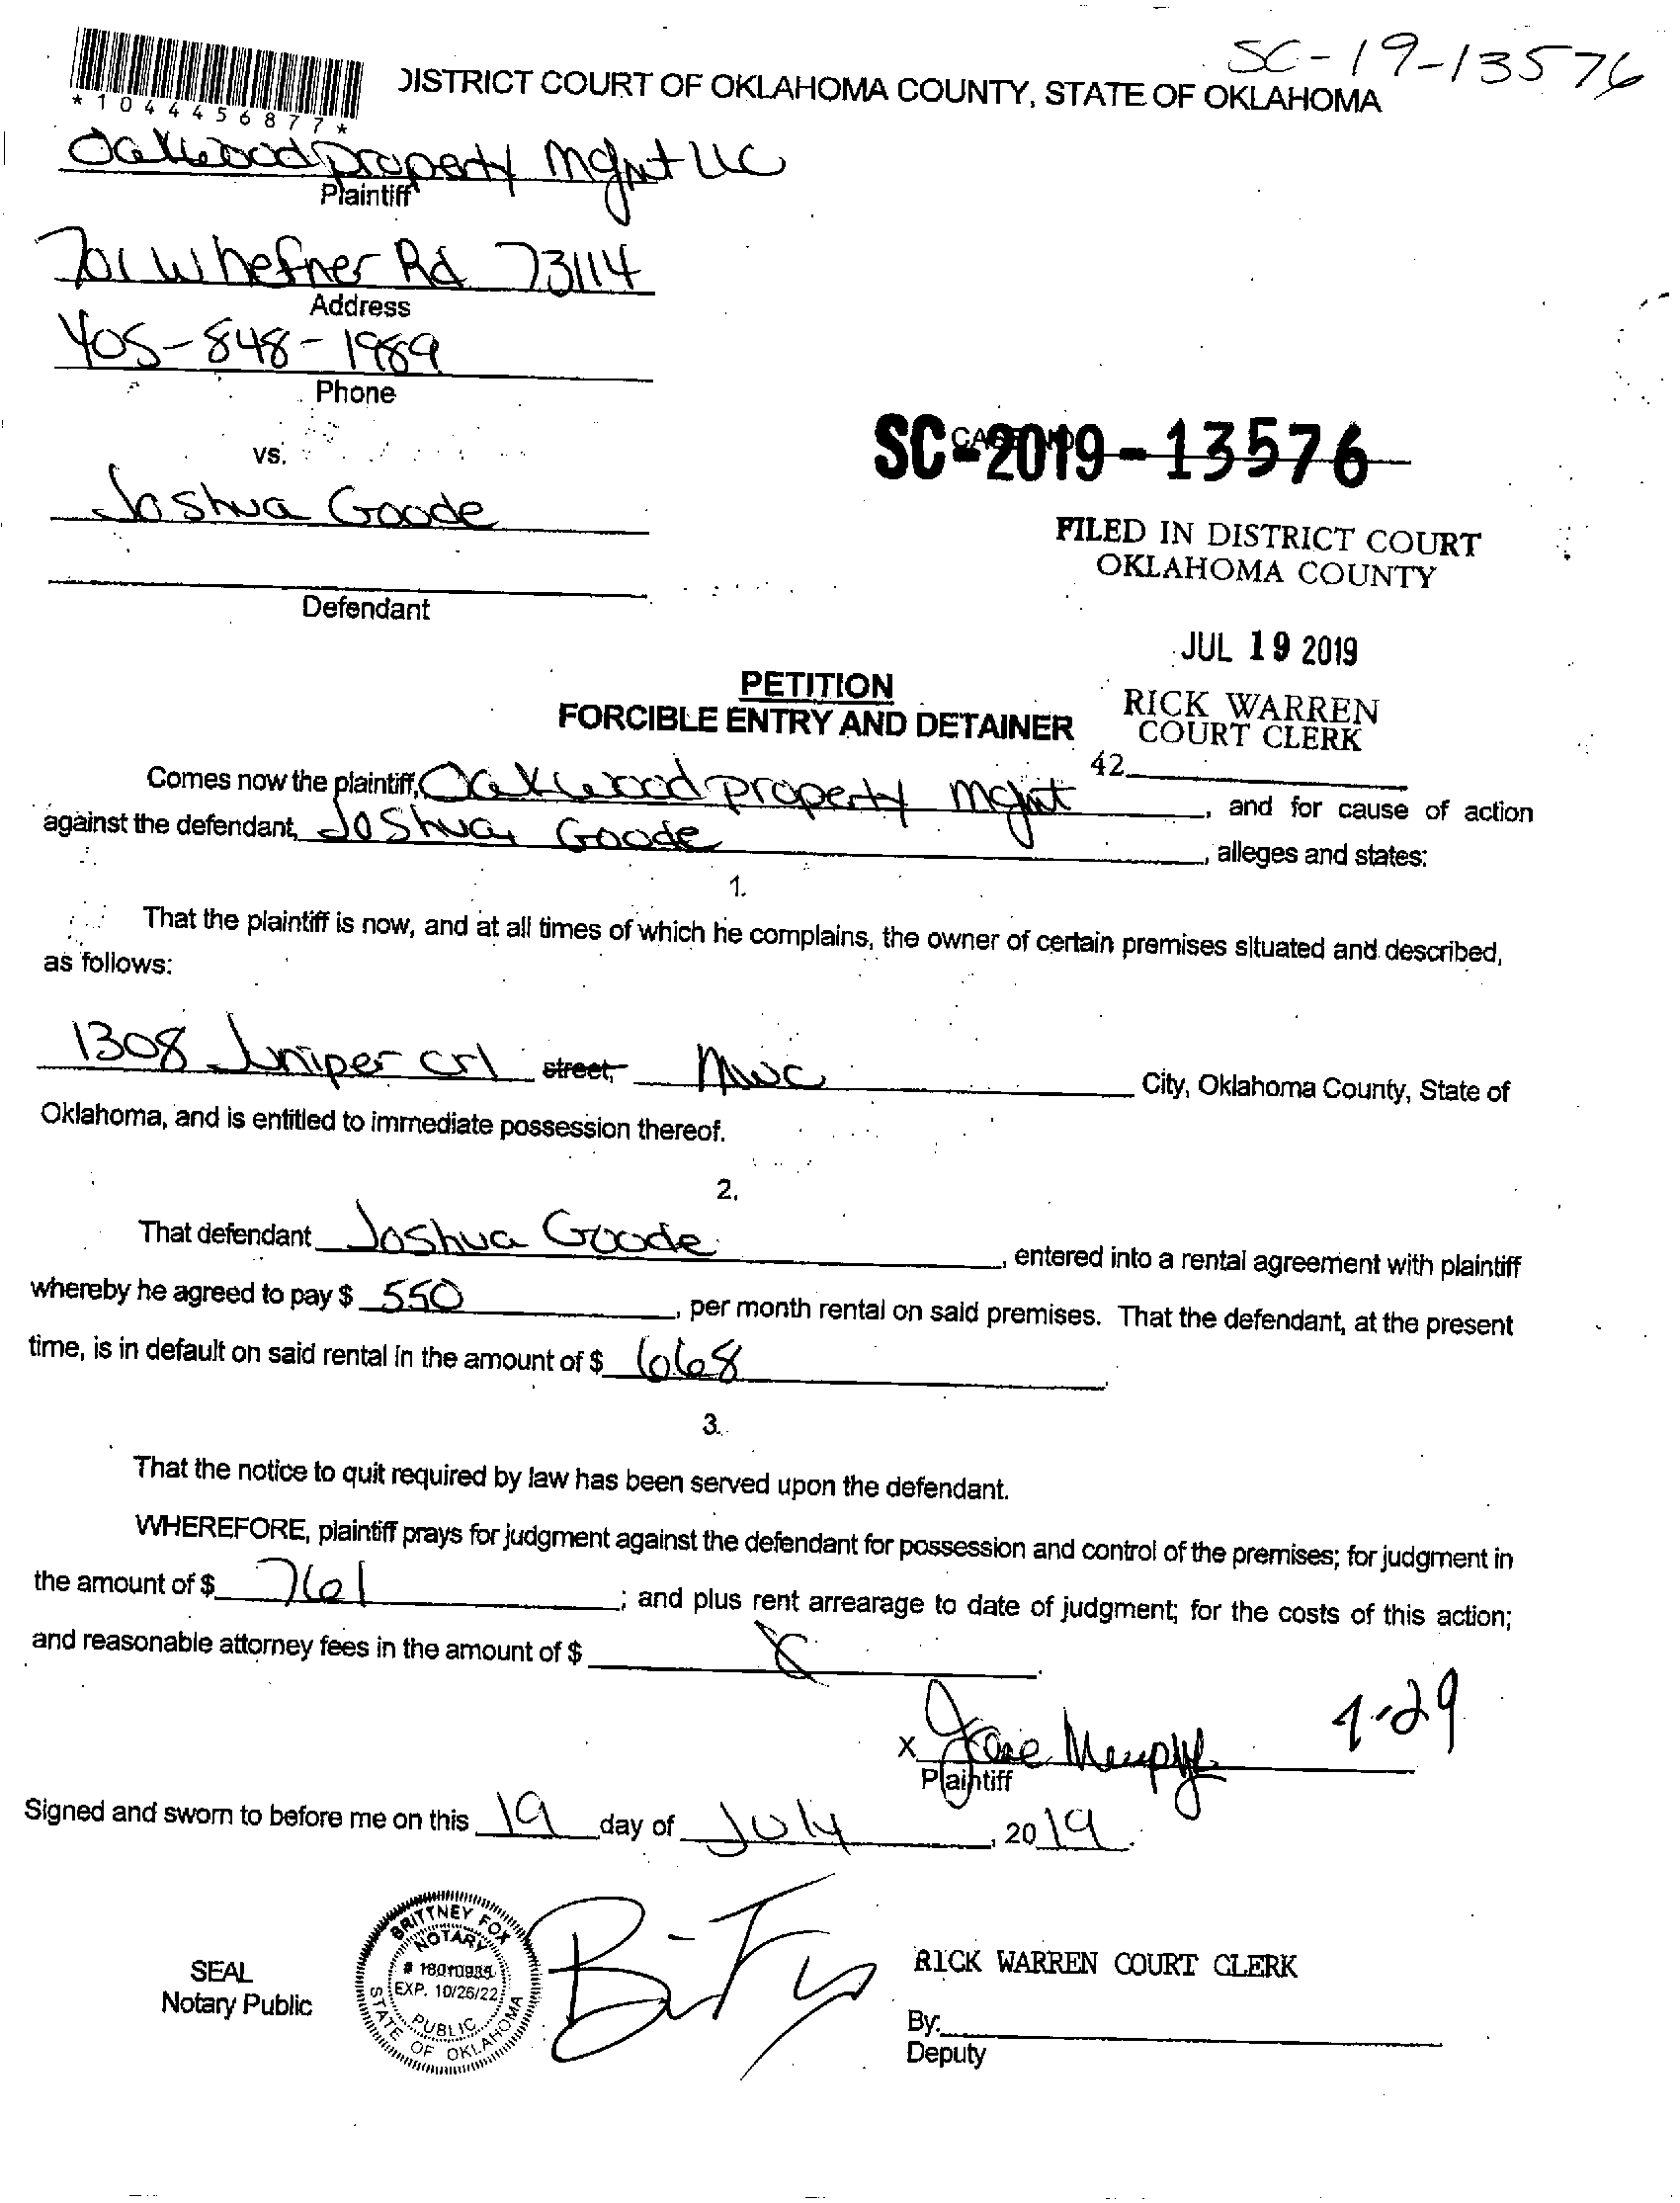 SC-19-13576
DISTRICT COURT OF OKLAHOMA COUNTY, STATE OF OKLAHOMA
*1044456877*
Oakwood property Mgmt LLC
Plaintiff
701 W hefner Rd 73114
Address
405-848-1989
Phone
vs.
SC-2019-13576
Joshua Goode
FILED IN DISTRICT COURT
OKLAHOMA COUNTY
Defendant
JUL 19 2019
PETITION
FORCIBLE ENTRY AND DETAINER
RICK WARREN
COURT CLERK
42
Comes now the plaintiff, Oakwood property Mgmt, and for cause of action
against the defendant, Joshua Goode, alleges and states:
1.
That the plaintiff is now, and at all times of which he complains, the owner of certain premises situated and described,
as follows:
1308 Juniper crl street, MWC City, Oklahoma County, State of
Oklahoma, and is entitled to immediate possession thereof.
2.
That defendant Joshua Goode, entered into a rental agreement with plaintiff
whereby he agreed to pay $ 550, per month rental on said premises. That the defendant, at the present
time, is in default on said rental in the amount of $ 668.
3.
That the notice to quit required by law has been served upon the defendant.
WHEREFORE, plaintiff prays for judgment against the defendant for possession and control of the premises; for judgment in
the amount of $ 761; and plus rent arrearage to date of judgment; for the costs of this action;
and reasonable attorney fees in the amount of $
X
Plaintiff
Signed and sworn to before me on this 19 day of July, 2019.
BRITTNEY FOX
NOTARY
EXP. 10/26/22
PUBLIC
STATE OF OKLAHOMA
SEAL
Notary Public
RICK WARREN COURT CLERK
By:
Deputy